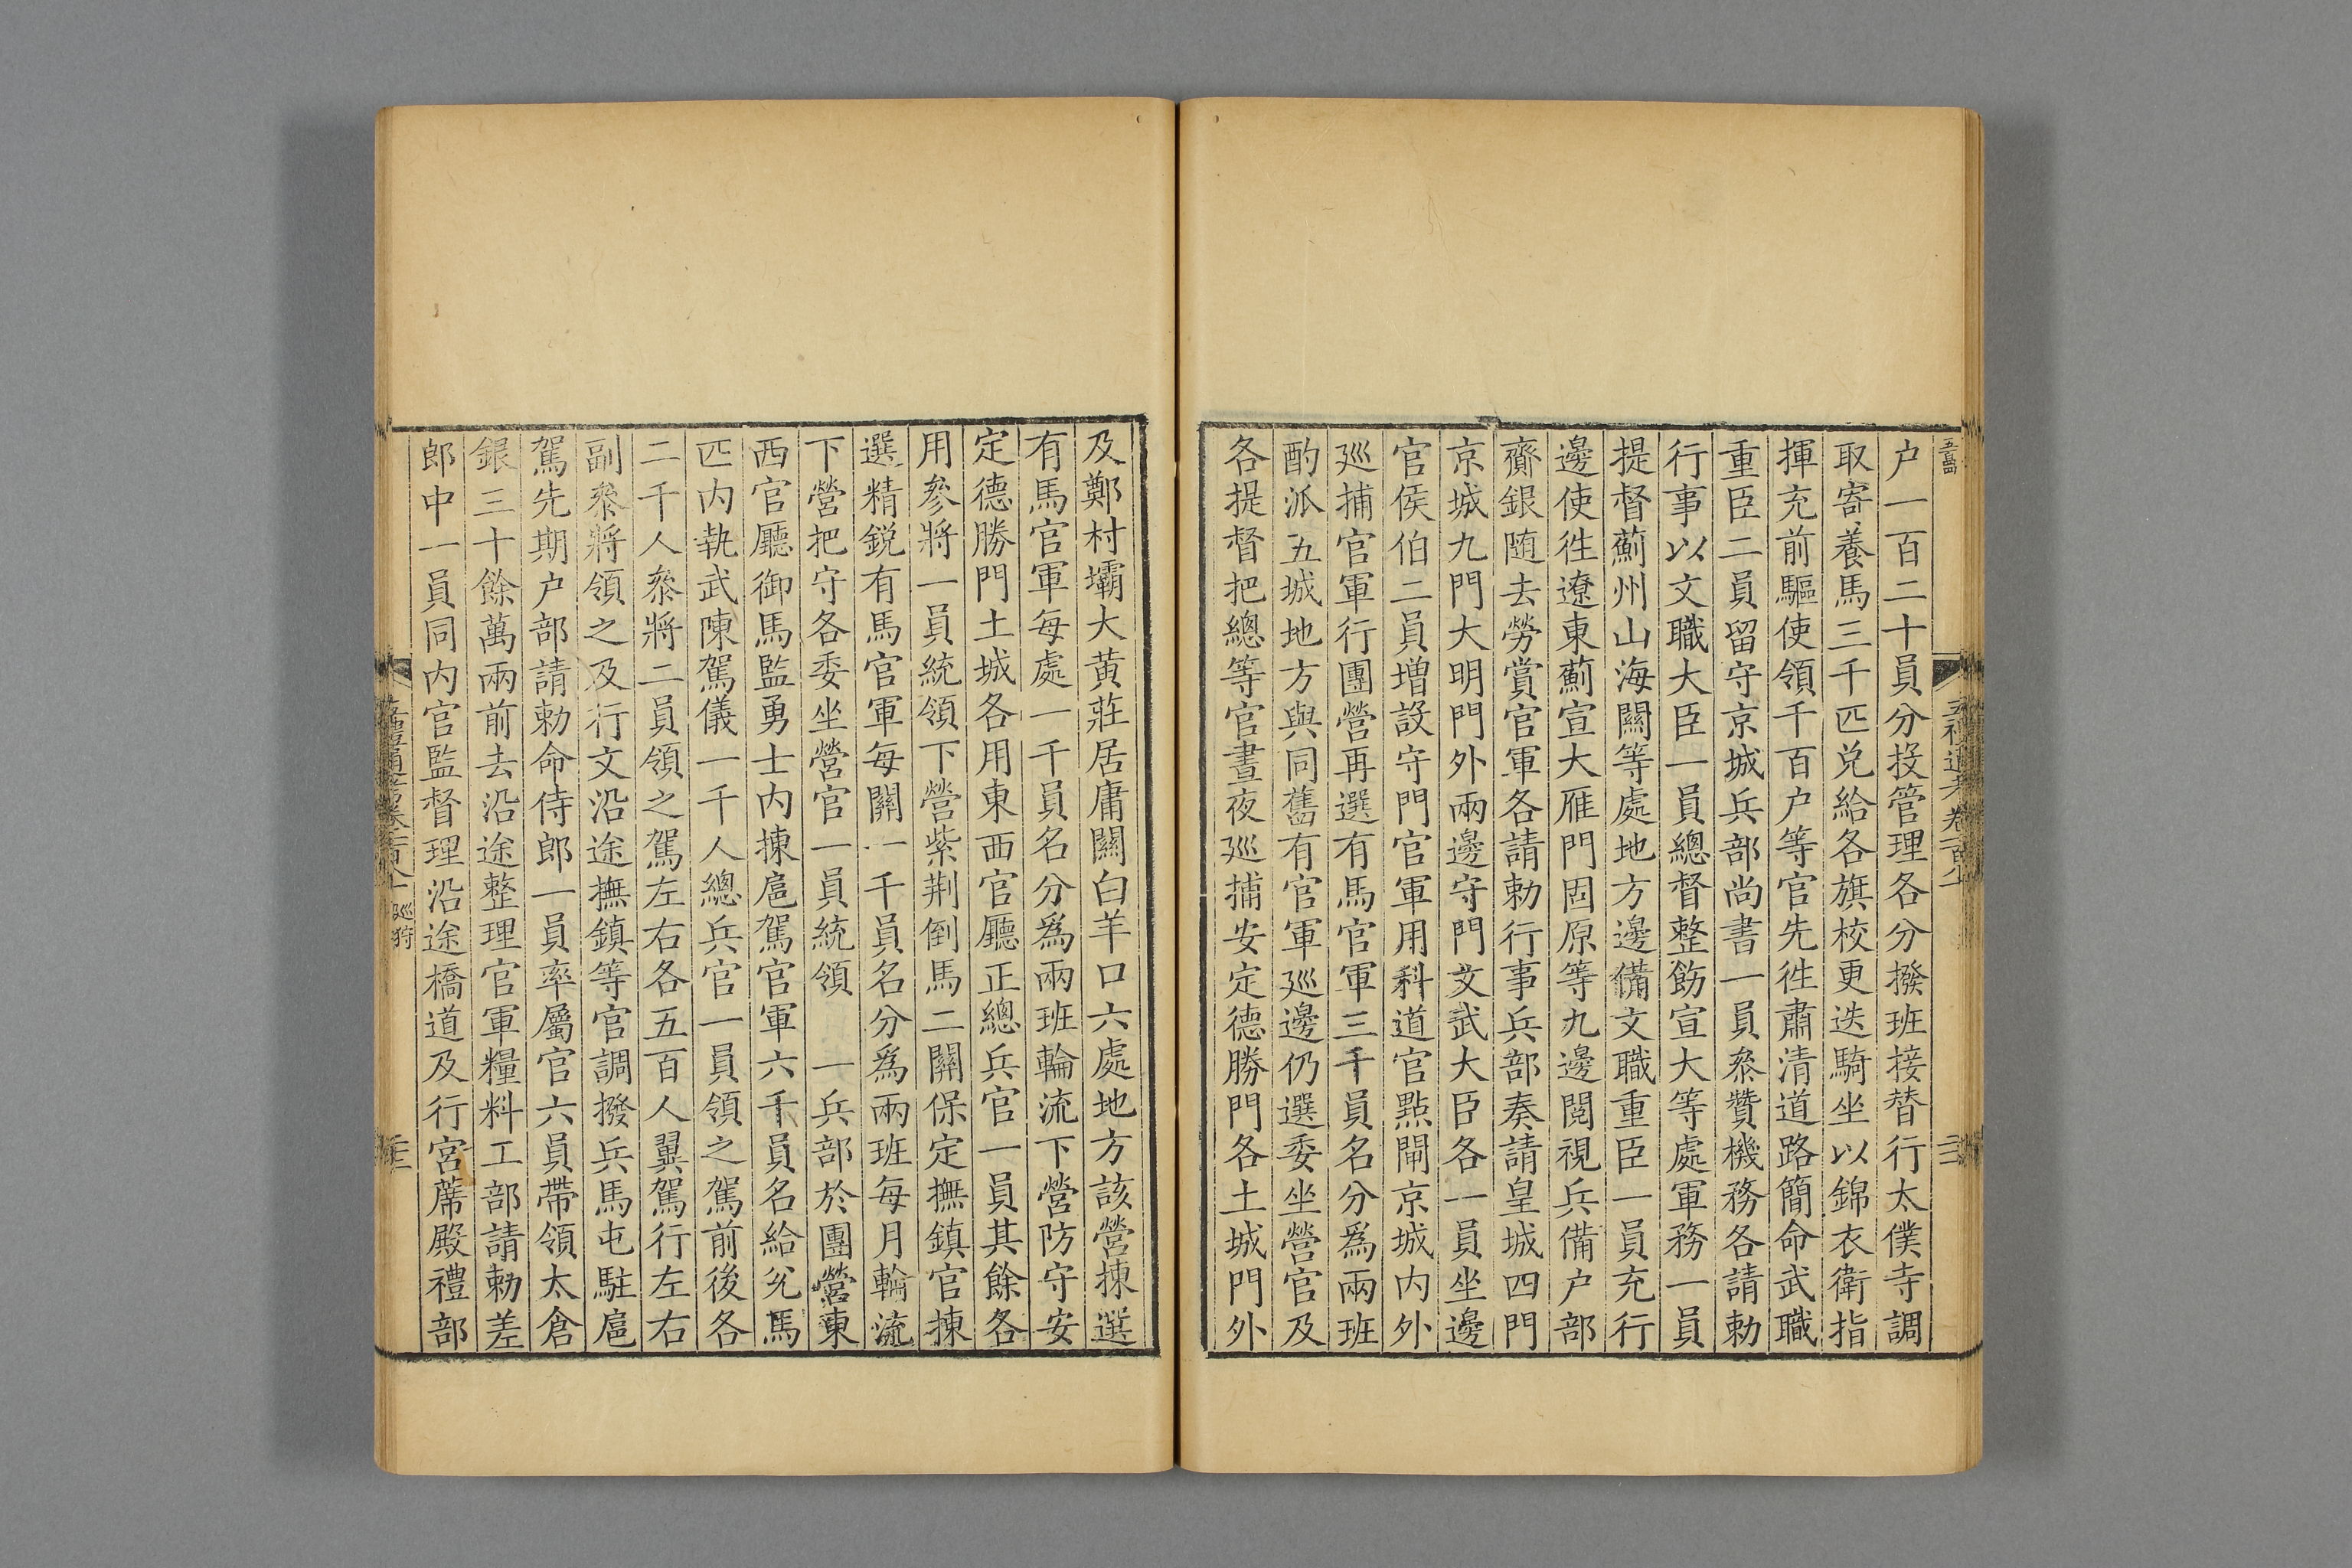 户一百二十員分投管理各分撥班接替行太僕寺調
取寄養馬三千匹兌給各旗校更迭騎坐以錦衣衛指
揮充前驅使領千百户等官先徃肅清道路簡命武職
重臣二員留守京城兵部尚書一員叅贊機務各請勅
行事以文職大臣一員總督整飭宣大等處軍務一員
提督薊州山海關等處地方邊備文職重臣一員充行
邊使徃遼東薊宣大雁門固原等九邊閱視兵備户部
齎銀随去勞賞官軍各請勅行事兵部奏請皇城四門
京城九門大明門外兩邊守門文武大臣各一員坐邊
官侯伯二員增設守門官軍用科道官點閘京城内外
廵捕官軍行團營再選有馬官軍三千員名分爲兩班
酌派五城地方與同舊有官軍廵邊仍選委坐營官及
各提督把總等官晝夜廵捕安定德勝門各土城門外
及鄭村壩大黄莊居庸關白羊口六處地方該營揀選
有馬官軍每處一千員名分爲兩班輪流下營防守安
定德勝門土城各用東西官廳正總兵官一員其餘各
用參將一員統領下營紫荆倒馬二關保定撫鎮官揀
選精鋭有馬官軍每關一千員名分爲兩班每月輪流
下營把守各委坐營官一員統領 一兵部於團營東
西官廳御馬監勇士内揀扈駕官軍六千員名給兌馬
匹内執武陳駕儀一千人總兵官一員領之駕前後各
二千人叅將二員領之駕左右各五百人翼駕行左右
副叅將領之及行文沿途撫鎮等官調撥兵馬屯駐扈
駕先期户部請勅命侍郎一員率屬官六員帶領太倉
銀三十餘萬兩前去沿途整理官軍糧料工部請勅差
郎中一員同内官監督理沿途橋道及行宮蓆殿禮部
廵狩